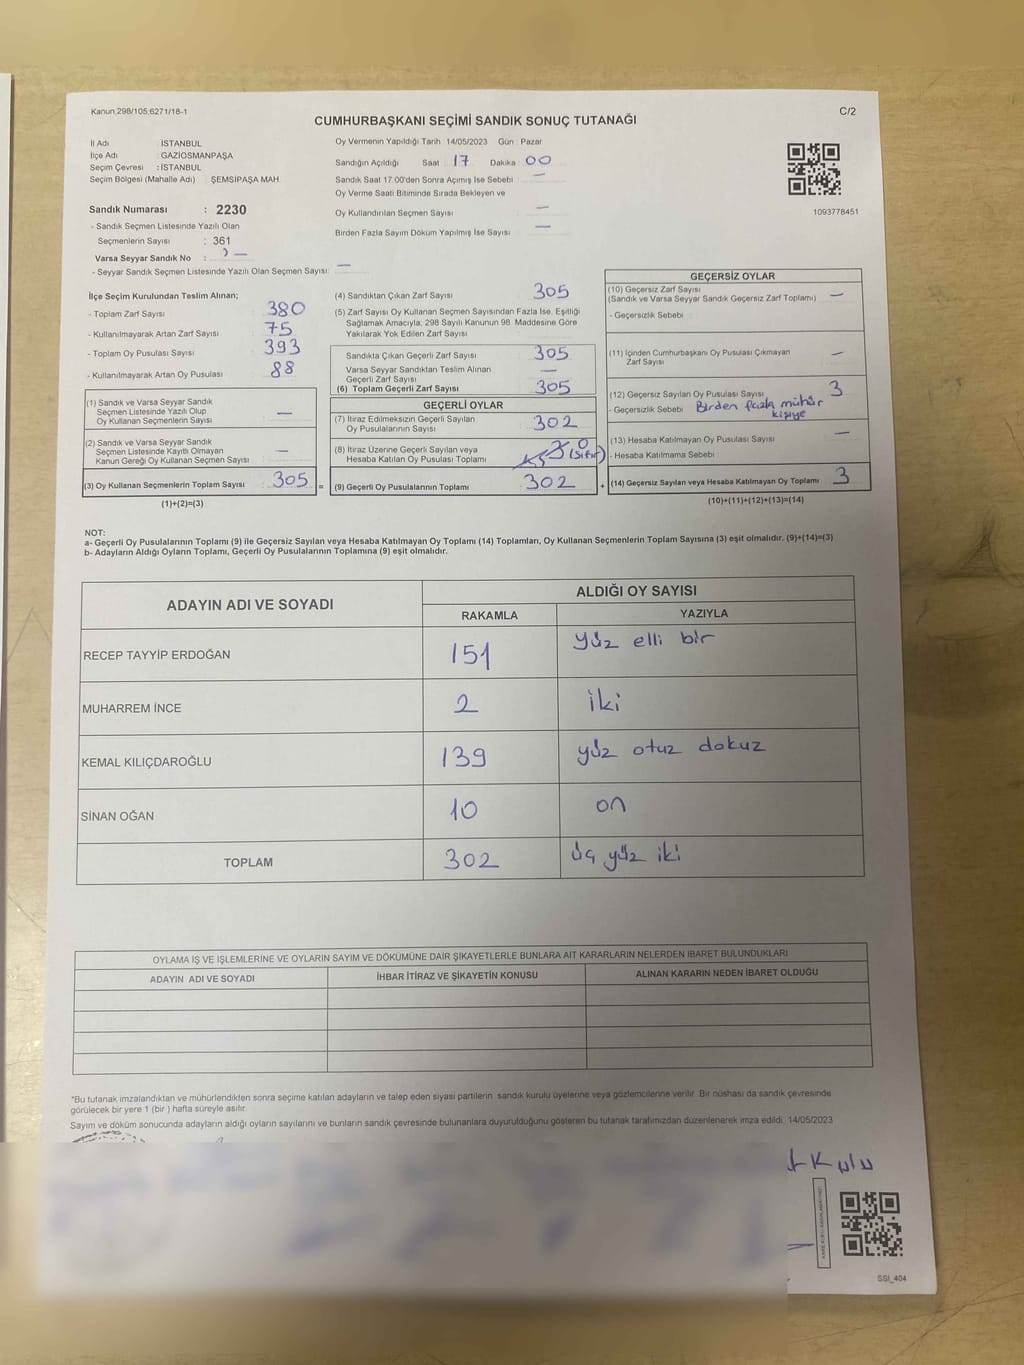 Kanun,298/105,6271/18-1
C/2
CUMHURBAŞKANI SEÇİMİ SANDIK SONUÇ TUTANAĞI
İl Adı : İSTANBUL
İlçe Adı : GAZİOSMANPAŞA
Seçim Çevresi : İSTANBUL
Seçim Bölgesi (Mahalle Adı) : ŞEMSİPAŞA MAH.
Sandık Numarası : 2230
- Sandık Seçmen Listesinde Yazılı Olan
Seçmenlerin Sayısı : 361
Varsa Seyyar Sandık No : —
- Seyyar Sandık Seçmen Listesinde Yazılı Olan Seçmen Sayısı: —
Oy Vermenin Yapıldığı Tarih : 14/05/2023 Gün : Pazar
Sandığın Açıldığı Saat : 17 Dakika : 00
Sandık Saat 17:00'den Sonra Açımış İse Sebebi : —
Oy Verme Saati Bitiminde Sırada Bekleyen ve
Oy Kullandırılan Seçmen Sayısı : —
Birden Fazla Sayım Döküm Yapılmış İse Sayısı : —
1093778451
İlçe Seçim Kurulundan Teslim Alınan;
- Toplam Zarf Sayısı : 380
- Kullanılmayarak Artan Zarf Sayısı : 75
- Toplam Oy Pusulası Sayısı : 393
- Kullanılmayarak Artan Oy Pusulası : 88
(1) Sandık ve Varsa Seyyar Sandık
Seçmen Listesinde Yazılı Olup
Oy Kullanan Seçmenlerin Sayısı : —
(2) Sandık ve Varsa Seyyar Sandık
Seçmen Listesinde Kayıtlı Olmayan
Kanun Gereği Oy Kullanan Seçmen Sayısı : —
(3) Oy Kullanan Seçmenlerin Toplam Sayısı : 305 =
(1)+(2)=(3)
(4) Sandıktan Çıkan Zarf Sayısı : 305
(5) Zarf Sayısı Oy Kullanan Seçmen Sayısından Fazla İse, Eşitliği
Sağlamak Amacıyla, 298 Sayılı Kanunun 98. Maddesine Göre
Yakılarak Yok Edilen Zarf Sayısı :
Sandıkta Çıkan Geçerli Zarf Sayısı : 305
Varsa Seyyar Sandıktan Teslim Alınan
Geçerli Zarf Sayısı : —
(6) Toplam Geçerli Zarf Sayısı : 305
GEÇERLİ OYLAR
(7) İtiraz Edilmeksizin Geçerli Sayılan
Oy Pusulalarının Sayısı : 302
(8) İtiraz Üzerine Geçerli Sayılan veya
Hesaba Katılan Oy Pusulası Toplamı : 0 (sıfır)
(9) Geçerli Oy Pusulalarının Toplamı : 302 +
GEÇERSİZ OYLAR
(10) Geçersiz Zarf Sayısı
(Sandık ve Varsa Seyyar Sandık Geçersiz Zarf Toplamı) : —
- Geçersizlik Sebebi :
(11) İçinden Cumhurbaşkanı Oy Pusulası Çıkmayan
Zarf Sayısı : —
(12) Geçersiz Sayılan Oy Pusulası Sayısı : 3
- Geçersizlik Sebebi : Birden fazla mühür
kişiye
(13) Hesaba Katılmayan Oy Pusulası Sayısı : —
- Hesaba Katılmama Sebebi :
(14) Geçersiz Sayılan veya Hesaba Katılmayan Oy Toplamı : 3
(10)+(11)+(12)+(13)=(14)
NOT:
a- Geçerli Oy Pusulalarının Toplamı (9) ile Geçersiz Sayılan veya Hesaba Katılmayan Oy Toplamı (14) Toplamları, Oy Kullanan Seçmenlerin Toplam Sayısına (3) eşit olmalıdır. (9)+(14)=(3)
b- Adayların Aldığı Oyların Toplamı, Geçerli Oy Pusulalarının Toplamına (9) eşit olmalıdır.
ADAYIN ADI VE SOYADI
ALDIĞI OY SAYISI
RAKAMLA YAZIYLA
RECEP TAYYİP ERDOĞAN 151 yüz elli bir
MUHARREM İNCE 2 iki
KEMAL KILIÇDAROĞLU 139 yüz otuz dokuz
SİNAN OĞAN 10 on
TOPLAM 302 üç yüz iki
OYLAMA İŞ VE İŞLEMLERİNE VE OYLARIN SAYIM VE DÖKÜMÜNE DAİR ŞİKAYETLERLE BUNLARA AİT KARARLARIN NELERDEN İBARET BULUNDUKLARI
ADAYIN ADI VE SOYADI İHBAR İTİRAZ VE ŞİKAYETİN KONUSU ALINAN KARARIN NEDEN İBARET OLDUĞU
*Bu tutanak imzalandıktan ve mühürlendikten sonra seçime katılan adayların ve talep eden siyasi partilerin sandık kurulu üyelerine veya gözlemcilerine verilir. Bir nüshası da sandık çevresinde
görülecek bir yere 1 (bir ) hafta süreyle asılır.
Sayım ve döküm sonucunda adayların aldığı oyların sayılarını ve bunların sandık çevresinde bulunanlara duyurulduğunu gösteren bu tutanak tarafımızdan düzenlenerek imza edildi. 14/05/2023
SSI_404